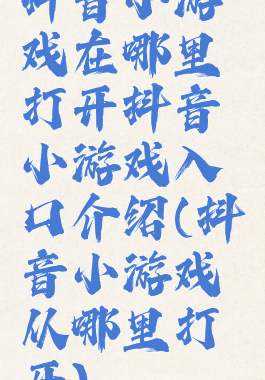 抖音小游
戏在哪里
打开抖音
小游戏入
口介绍(抖
音小游戏
从哪里打
开)